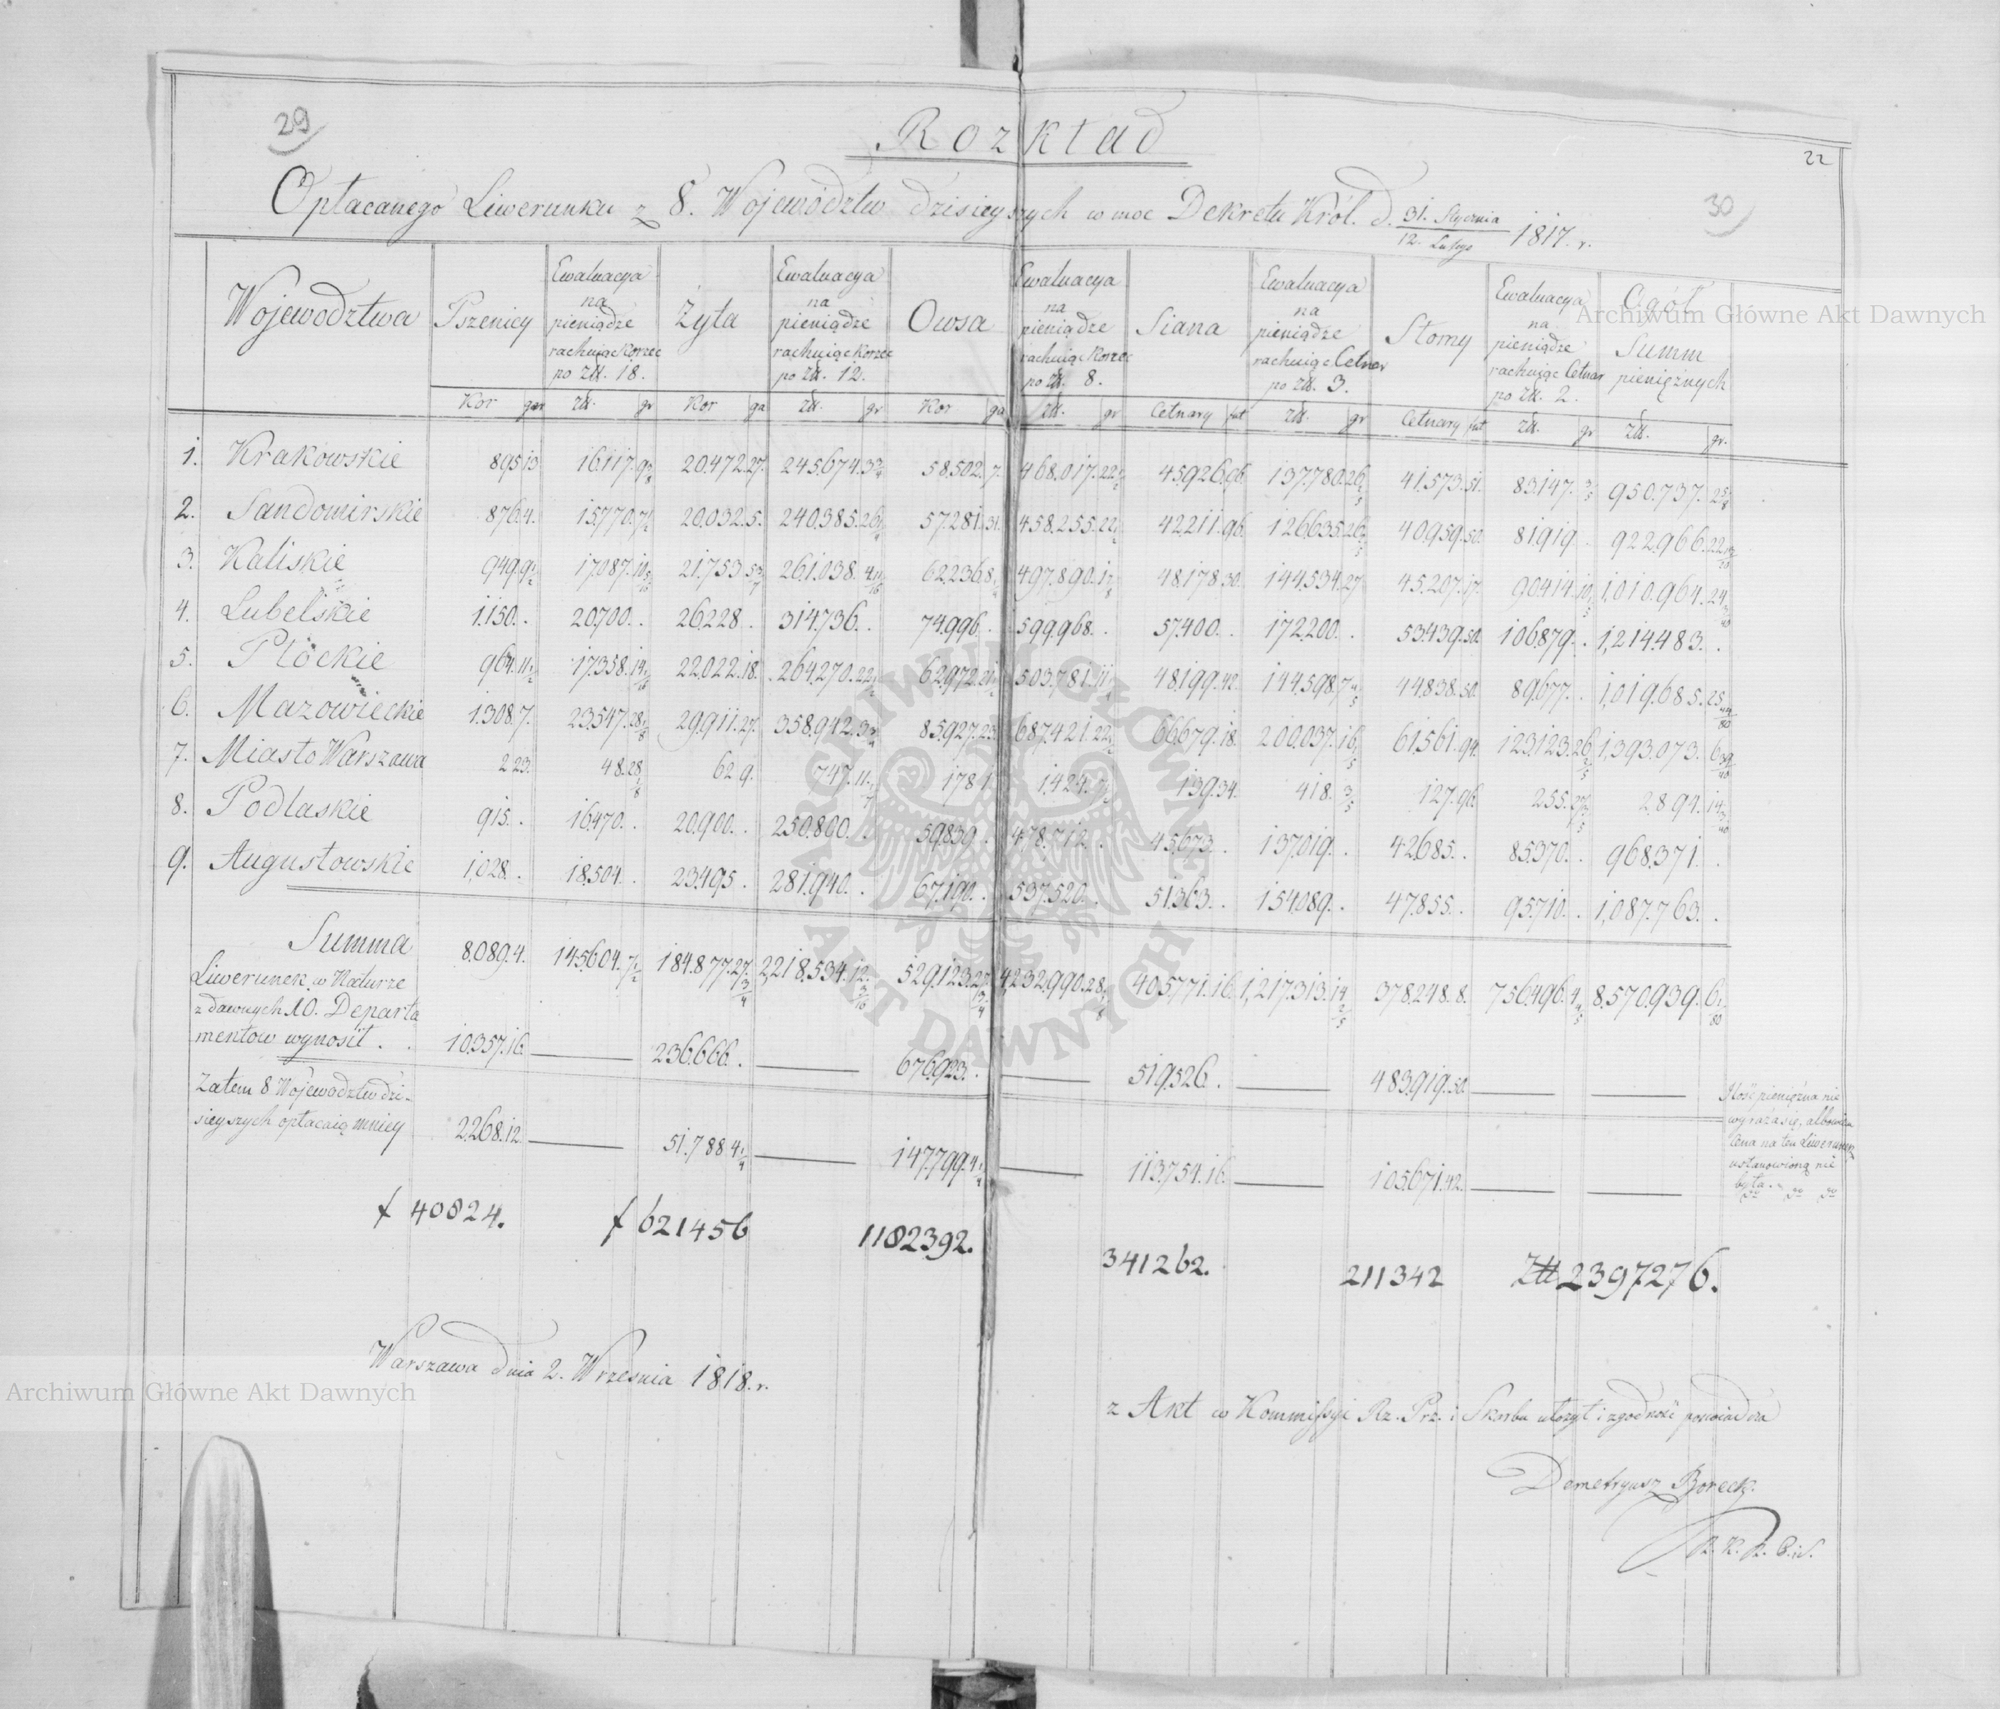 29
Rozkład
22
Opłacanego Liwerunku z 8. Województw dzisieyszych w moc Dekretu Król. d. 31. Stycznia / 12. Lutego 1817. r.
30
Województwa | Pszenicy | Ewaluacya na pieniądze rachuiąc Korzec po Złł. 18. | Żyta | Ewaluacya na pieniądze rachuiąc Korzec po Złł. 12. | Owsa | Ewaluacya na pieniądze rachuiąc Korzec po Złł. 8. | Siana | Ewaluacya na pieniądze rachuiąc Cetnar po Złł. 3. | Słomy | Ewaluacya na pieniądze rachuiąc Cetnar po Złł. 2. | Ogół Summ pieniężnych
Kor | gar | Złł. | gr | Kor | ga | Złł. | gr | Kor | ga | Złł. | gr | Cetnary | fut | Złł. | gr | Cetnary | fut | Złł. | gr | Złł. | gr.
1. Krakowskie 895 13 16117. 20.472. 27. 245.674. 58.502. 7. 468.017. 22 1/2 45,926. 96. 137.780. 26 2/5 41,573. 51. 83,147. 3/5 950.737.
2. Sandomirskie 876. 4. 15770. 7 1/2 20,032. 5. 240.385. 57.281. 31. 458.255. 22 1/2 42,211. 96. 126,635. 26 2/5 40,959. 50. 81919. 922.966.
3. Kaliskie 949. 9 1/2 17087. 21.753. 261.038. 62,236. 497.890. 48,178. 30. 144,534. 27 45.207. 17. 90414. 1,010.964.
4. Lubelskie 1.150. 20,700. 26,228. 314.736. 74.996. 599,968. 57.400. 172,200. 53439. 50. 106,879. 1,214.483.
5. Płockie 964. 11 1/2 17.358. 22,022. 18. 264,270. 62,972. 503,781. 48,199. 42. 144,598. 7 4/5 44,838. 50. 89,677. 1,019,685.
6. Mazowieckie 1.308. 7. 23,547. 29,911. 27. 358,942. 85,927. 23. 687,421. 22 1/2 66,679. 18. 200,037. 61,561. 94. 123,123. 26 2/5 1,393,073.
7. Miasto Warszawa 2 23. 48. 62 9. 747. 178 1. 1,424. 139. 34. 418. 3/5 127. 96. 255. 2.894.
8. Podlaskie 915. 16,470. 20,900. 250.800. 59,839. 478,712. 45,673. 137,019. 42,685. 85,370. 968,371.
9. Augustowskie 1,028. 18,504. 23,495. 281,940. 67,190. 537,520. 51,363. 154,089. 47,855. 95,710. 1,087.763.
Summa 8,089. 4. 145,604. 7 1/2 184,877. 27 3/4 2,218,534. 12 3/16 529,123. 27 3/4 4,232,990. 405,771. 16. 1,217,313. 14 2/5 378,248. 8. 756,496. 4 4/5 8,570,939. 6 1/80
Liwerunek w Naturze
z dawnych 10. Departa
mentow wynosił . . 10,357. 16. 236,666. 676,923. 519,526. 483,919. 50.
Zatem 8 Wojewodztw dzi-
sieyszych opłacaią mniey 2,268. 12. 51,788. 4 1/4 147,799. 4 1/4 113,754. 16. 105,671. 42.
Ilość pieniężna nie
wyraża się, albowiem
cena na ten Liwerunek
ustanowioną nie
była.
f 40824. f 621456 1182392. 341262. 211342 Złł 2397276.
Warszawa dnia 2. Września 1818. r.
z Akt w Kommissyi Rz. Prz. i Skarbu ułożył i zgodność poświadcza
Demetryusz Borecki
Archiwum Główne Akt Dawnych
Archiwum Główne Akt Dawnych
ARCHIWUM GŁÓWNE AKT DAWNYCH